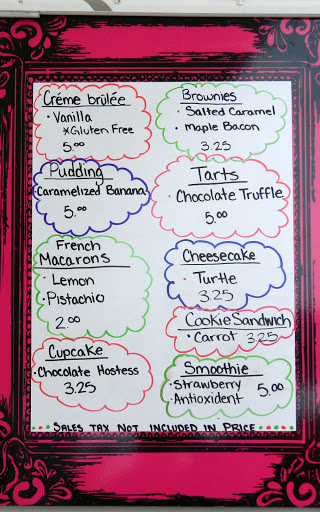 Créme brûlée
• Vanilla
*Gluten Free
5.00
Brownies
• Salted Caramel
• Maple Bacon
3.25
Pudding
• Caramelized Banana
5.00
Tarts
• Chocolate Truffle
5.00
French
Macarons
• Lemon
• Pistachio
2.00
Cheesecake
• Turtle
3.25
Cookie Sandwich
• Carrot 3.25
Cupcake
• Chocolate Hostess
3.25
Smoothie
• Strawberry 5.00
• Antioxident
Sales tax not included in Price